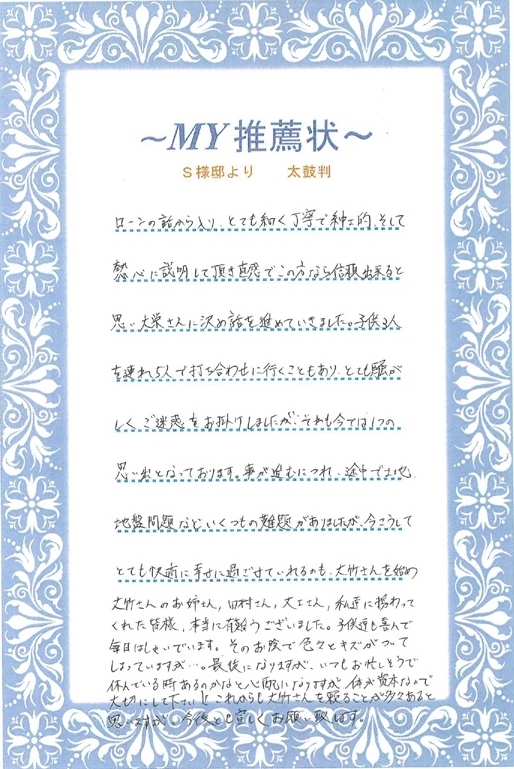 ～MY 推薦状～
S様邸より 太鼓判
ローンの話から入り、とても細く丁寧で紳士的、そして
熱心に説明して頂き直感でこの方なら信頼出来ると
思い大栄さんに決め話を進めていきました。子供3人
を連れ5人で打ち合わせに行くこともあり、とても騒が
しく、ご迷惑をお掛けしましたが、それも今では1つの
思い出となっております。事が進むにつれ、途中で土地
地盤問題などいくつもの難題がありましたが、今こうして
とても快適に幸せに過ごせていれるのも、大竹さんを始め
大竹さんのお姉さん、田村さん、大工さん、私達に携わって
くれた皆様、本当に有難うございました。子供達も喜んで
毎日はしゃいでいます。そのお陰で色々とキズがついて
しまっていますが…。最後になりますが、いつもお忙しそうで
休んでいる時あるのかなと心配になりますが、体が資本なので
大切にして下さい。これからも大竹さんを頼ることが多々あると
思いますが、今後とも宜しくお願い致します。